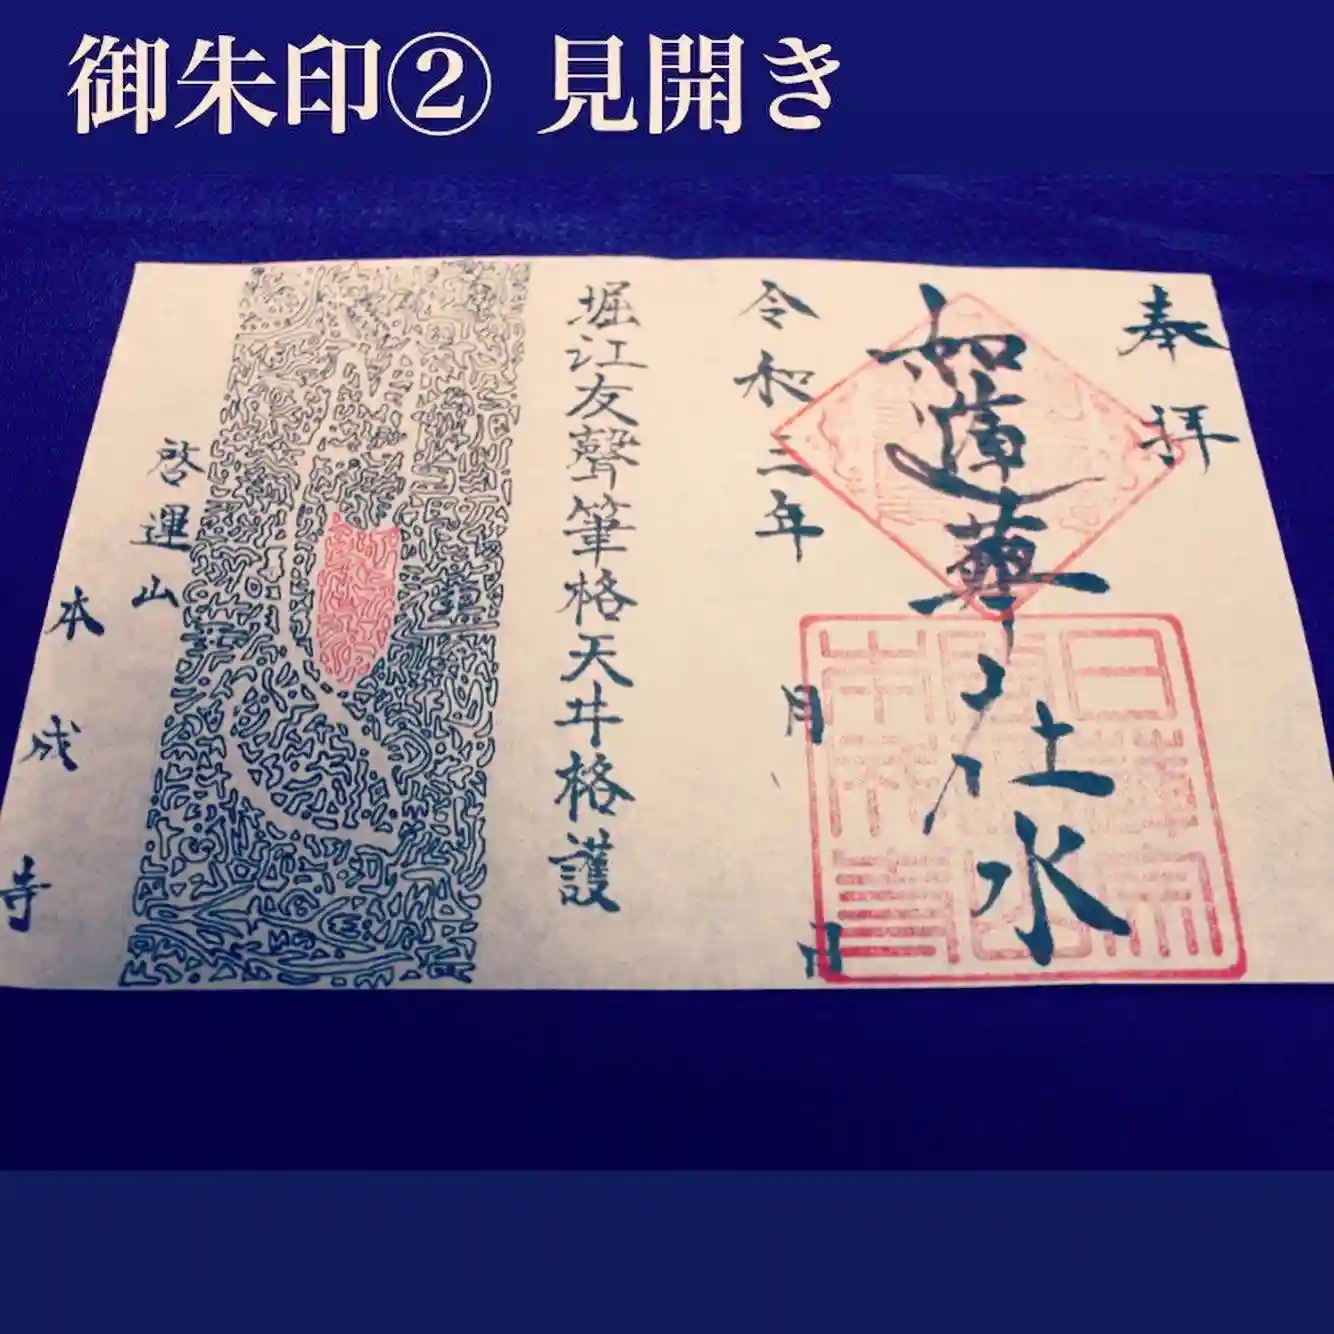 御朱印② 見開き
奉拝
如蓮華在水
令和二年
月
日
堀江友聲筆格天井格護
啓運山
本成寺